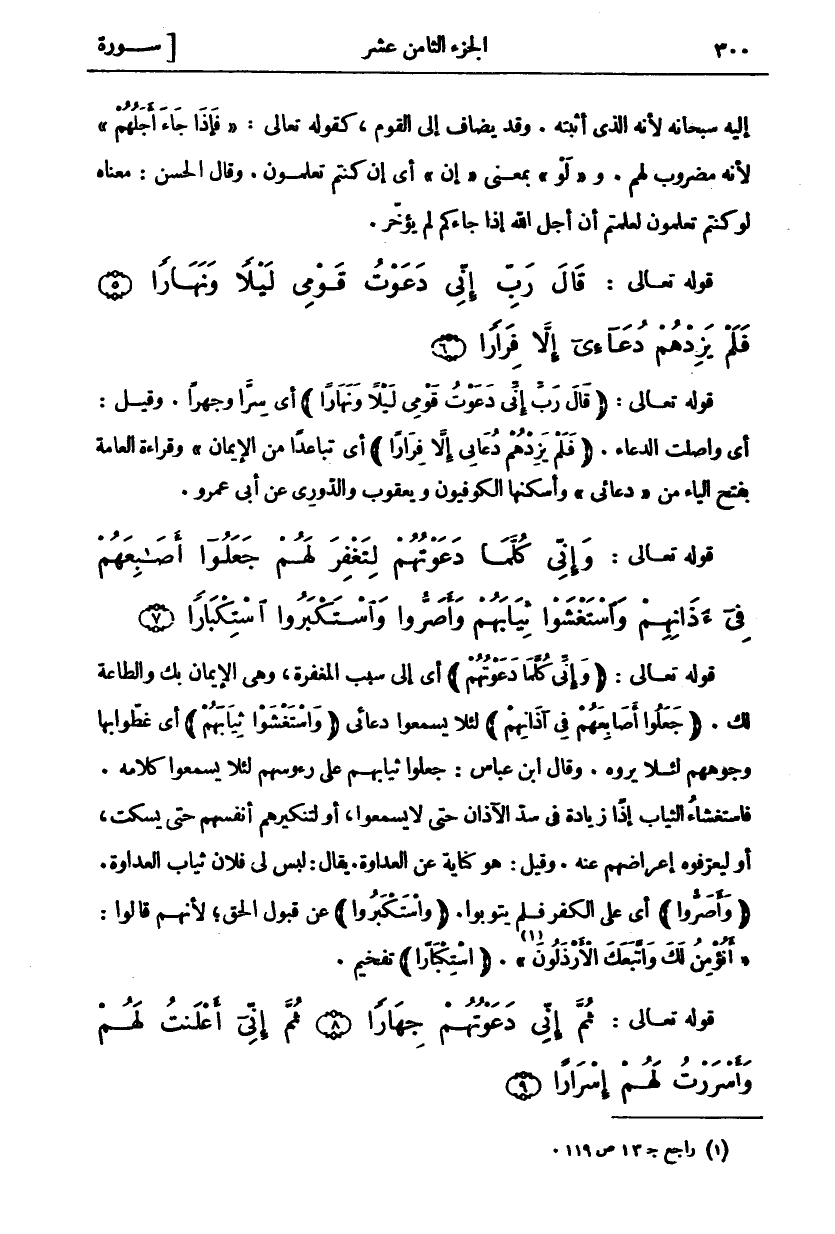 ٣٠٠ الجزء الثامن عشر [ ســـورة
إليه سبحانه لأنه الذى أثبته . وقد يضاف إلى القوم ، كقوله تعالى : « فَإِذَا جَاءَ أَجَلُهُمْ »
لأنه مضروب لهم . و « لَوْ » بمعنى « إن » أى إن كنتم تعلمــون . وقال الحسن : معناه
لو كنتم تعلمون لعلمتم أن أجل الله إذا جاءكم لم يؤخّر .
قوله تعــالى : قَالَ رَبِّ إِنِّى دَعَوْتُ قَوْمِى لَيْلًا وَنَهَارًا ⑤
فَلَمْ يَزِدْهُمْ دُعَآءِىٓ إِلَّا فِرَارًا ⑥
قوله تعــالى : ﴿ قَالَ رَبِّ إِنِّى دَعَوْتُ قَوْمِى لَيْلًا وَنَهَارًا ﴾ أى سِرًّا وجهراً . وقيــل :
أى واصلت الدعاء . ﴿ فَلَمْ يَزِدْهُمْ دُعَائِى إِلَّا فِرَارًا ﴾ أى تباعدًا من الإيمان » وقراءة العامة
بفتح الياء من « دعائى » وأسكنها الكوفيون ويعقوب والدورى عن أبى عمرو .
قوله تعــالى : وَإِنِّى كُلَّمَا دَعَوْتُهُمْ لِتَغْفِرَ لَهُمْ جَعَلُوٓا أَصَٰبِعَهُمْ
فِىٓ ءَاذَانِهِمْ وَاسْتَغْشَوْا ثِيَابَهُمْ وَأَصَرُّوا وَاسْتَكْبَرُوا اسْتِكْبَارًا ⑦
قوله تعــالى : ﴿ وَإِنِّى كُلَّمَا دَعَوْتُهُمْ ﴾ أى إلى سبب المغفرة ، وهى الإيمان بك والطاعة
لك . ﴿ جَعَلُوا أَصَابِعَهُمْ فِى آذَانِهِمْ ﴾ لئلا يسمعوا دعائى ﴿ وَاسْتَغْشَوْا ثِيَابَهُمْ ﴾ أى غطّوا بها
وجوههم لئــلا يروه . وقال ابن عباس : جعلوا ثيابهــم على رءوسهم لئلا يسمعوا كلامه .
فاستغشاءُ الثياب إذًا زيادة فى سدّ الآذان حتى لا يسمعوا ، أو لتنكيرهم أنفسهم حتى يسكت ،
أو ليعرّفوه إعراضهم عنه . وقيل : هو كناية عن العداوة. يقال : لبس لى فلان ثياب العداوة.
﴿ وَأَصَرُّوا ﴾ أى على الكفر فــلم يتوبوا. ﴿ واسْتَكْبَرُوا ﴾ عن قبول الحق ؛ لأنهــم قالوا :
« أَنُؤْمِنُ لَكَ وَاتَّبَعَكَ الْأَرْذَلُونَ (١) » . ﴿ اسْتِكْبَارًا ﴾ تفخيم .
قوله تعــالى : ثُمَّ إِنِّى دَعَوْتُهُمْ جِهَارًا ⑧ ثُمَّ إِنِّىٓ أَعْلَنتُ لَهُمْ
وَأَسْرَرْتُ لَهُمْ إِسْرَارًا ⑨
(١) راجع جـ ١٣ ص ١١٩ .